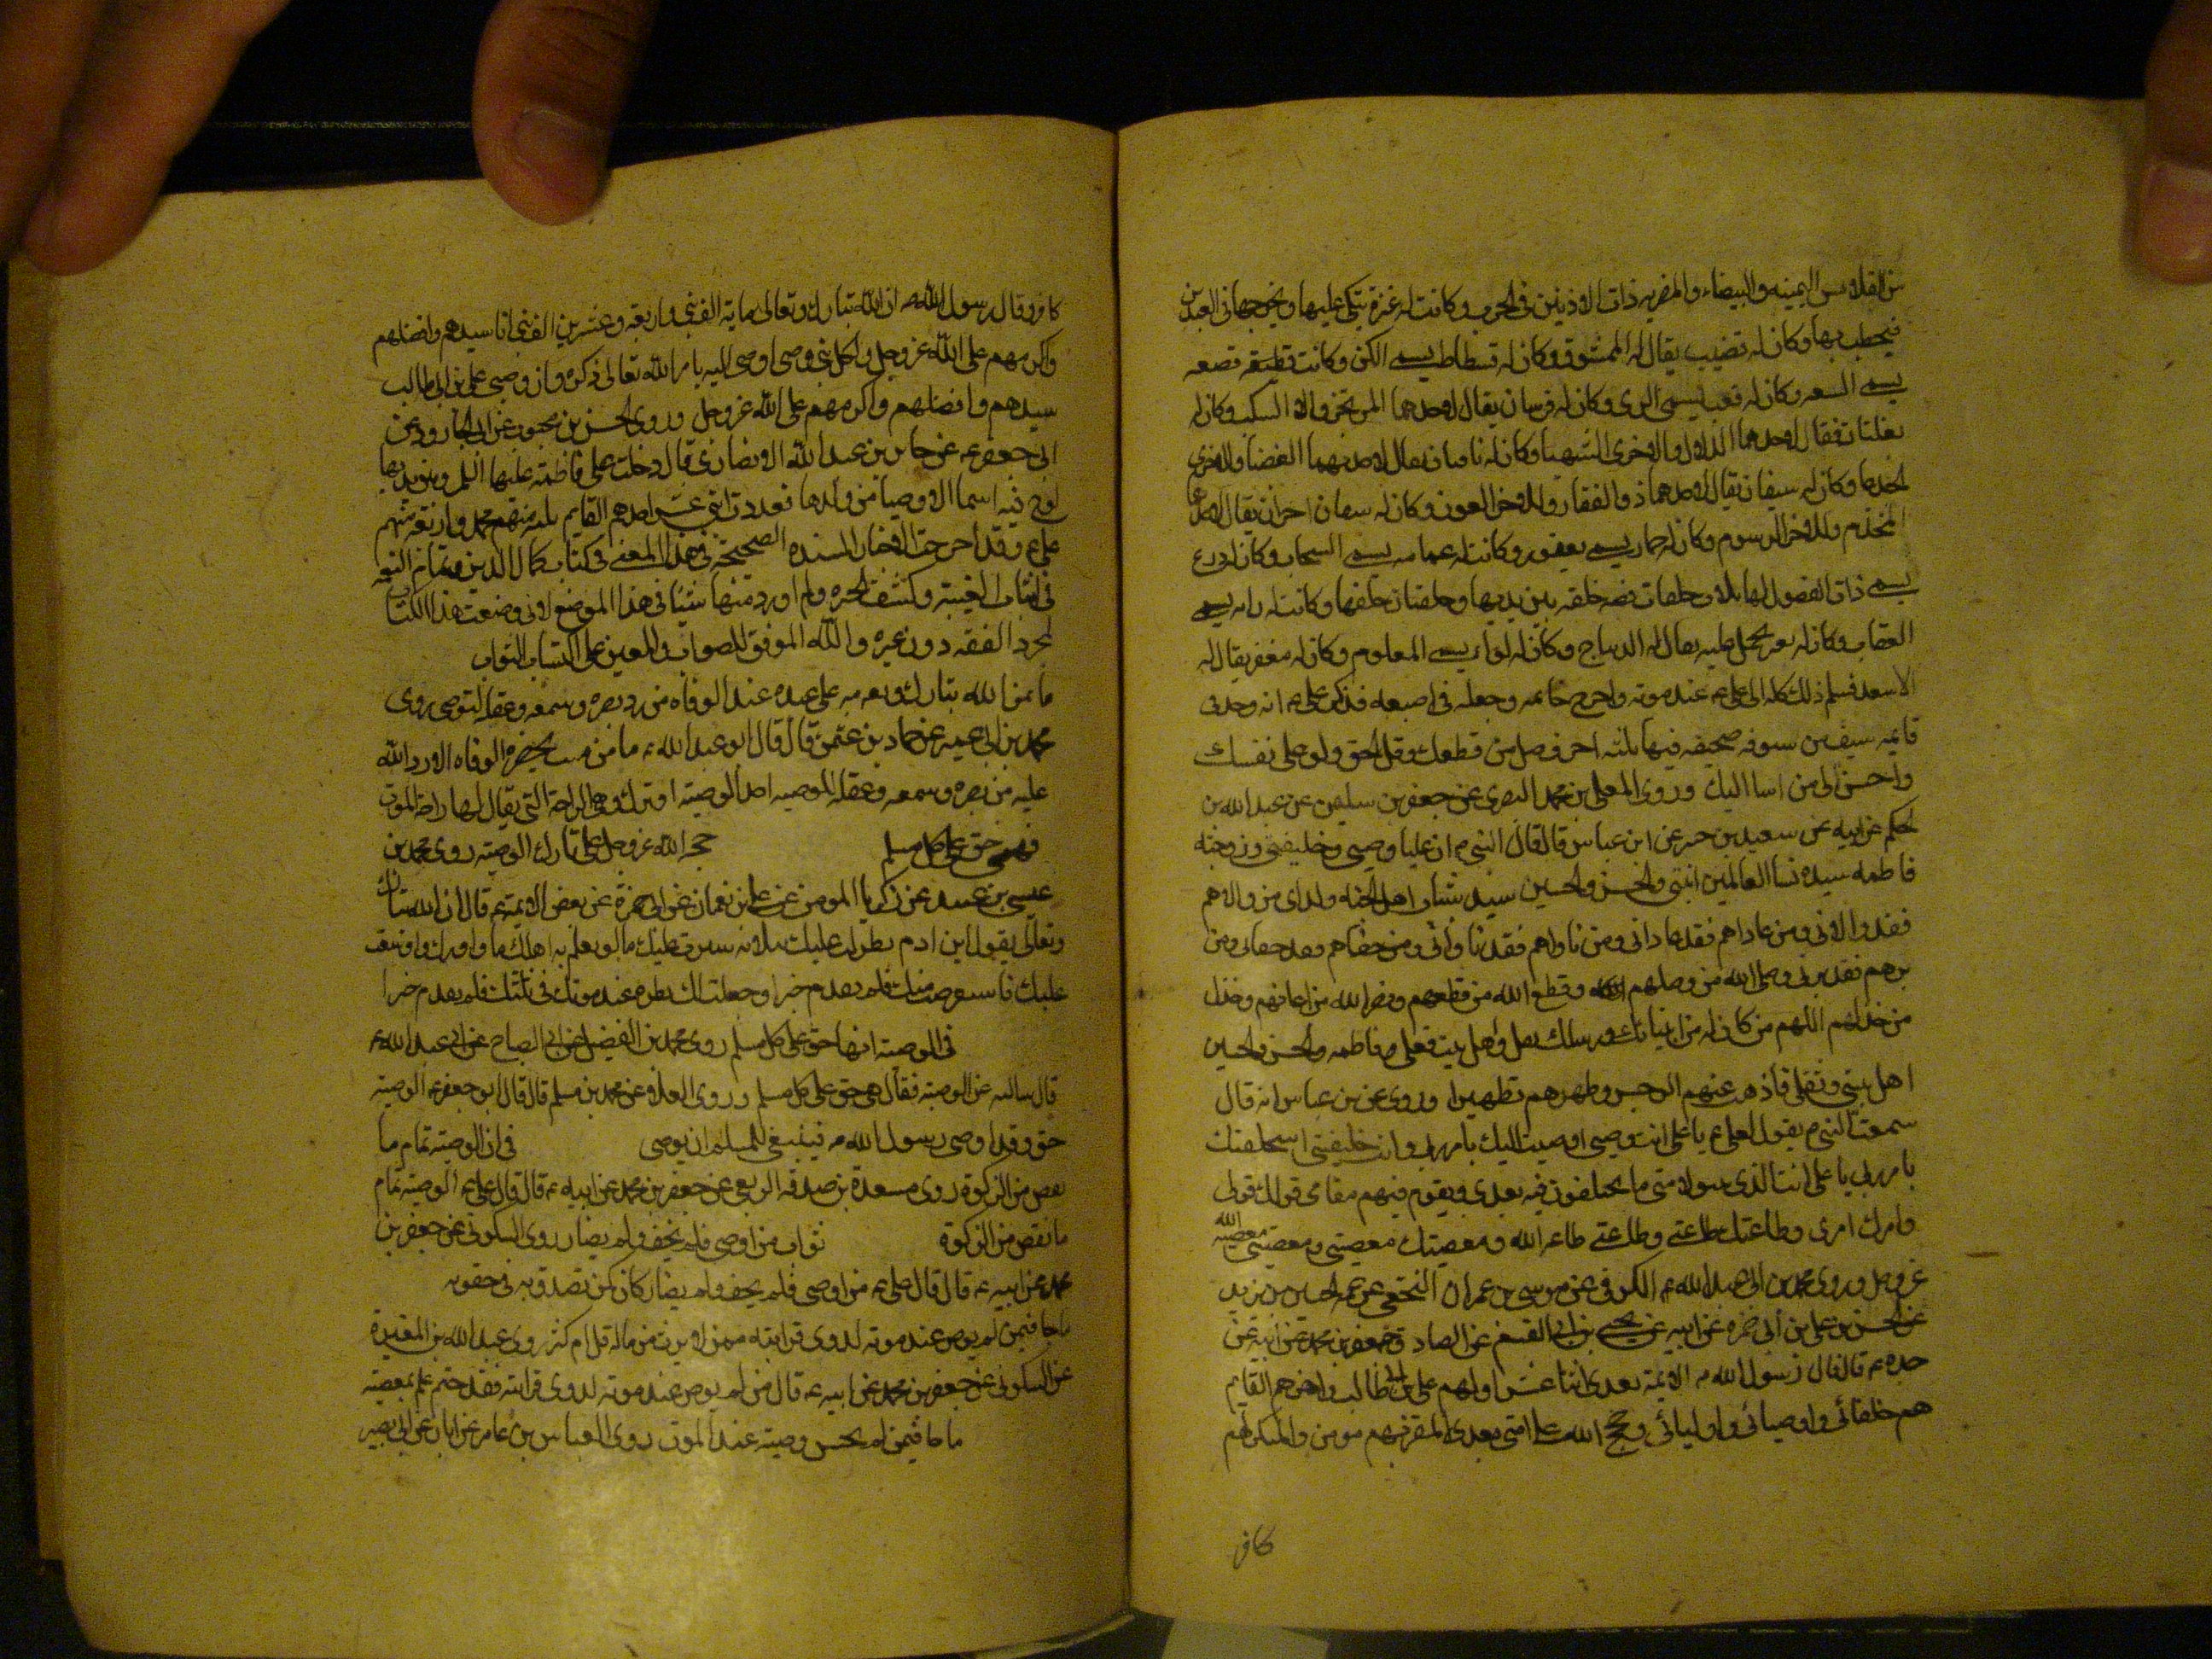 من القلانس اليمنيه والبيضاء والمضربه ذات الاذنين في الحرب وكانت له عنزة يتكى عليها ويخرجها في العيدين
فيخطب بها وكان له قضيب يقال له الممشوق وكان له فسطاط يسمى الكن وكانت قطيفه قصعه
يسمى السعه وكان له قعب يسمى الرى وكان له فرسان يقال لاحدهما المرتجز والاخر السكب وكان له
بغلتان يقال لاحدهما الدلدل والاخرى الشهبا وكان له ناقتان يقال لاحدهما العضبا والاخرى
الجدعا وكان له سيفان يقال لاحدهما ذو الفقار وللاخر العون وكان له سيفان اخران يقال لاحدهما
المخذم وللاخر الرسوم وكان له حمار يسمى يعفور وكانت له عمامه يسمى السحاب وكان له درع
يسمى ذات الفضول لها ثلاث حلقات فضه حلقه بين يديها وحلقتان خلفها وكانت له رايه يسمى
العقاب وكان له بعير يحمل عليه يقال له الديباج وكان له لواء يسمى المعلوم وكان له مغفر يقال له
الاسعد فسلم ذلك كله الى على ع عند موته واخرج خاتمه وجعله في اصبعه فذكر على ع انه وجد في
قايمه سيف من سيوفه صحيفه فيها ثلثه احرف صل من قطعك وقل الحق ولو على نفسك
واحسن الى من اسا اليك وروى المعلى بن محمد البصرى عن جعفر بن سليمن عن عبد الله بن
الحكم عن ابيه عن سعيد بن جبير عن ابن عباس قال قال النبي ص ان عليا وصيي وخليفتي وزوجته
فاطمه سيده نسا العالمين ابنتي والحسن والحسين سيدا شباب اهل الجنه ولداى من والاهم
فقد والاني ومن عاداهم فقد عاداني ومن ناواهم فقد ناوانى ومن جفاهم فقد جفاني ومن
برهم فقد برني وصل الله من وصلهم وقطع الله من قطعهم ونصر الله من اعانهم وخذل
من خذلهم اللهم من كان له من انبيائك ورسلك ثقل واهل بيت فعلى وفاطمه والحسن والحسين
اهل بيتي وثقلى فاذهب عنهم الرجس وطهرهم تطهيرا وروى عن بن عباس انه قال
سمعت النبي ص يقول لعلى ع يا على انت وصيي اوصيت اليك بامر ربي وانت خليفتي استخلفتك
بامر ربي يا على انت الذى يبين لامتى ما يختلفون فيه بعدى ويقوم فيهم مقامى قولك قولى
وامرك امرى وطاعتك طاعتى وطاعتى طاعه الله ومعصيتك معصيتي ومعصيتي معصيه الله
عز وجل وروى محمد بن ابى عبد الله الكوفى عن موسى بن عمران النخعى عن عمه الحسين بن يزيد
عن الحسن بن على بن أبى حمزه عن ابيه عن يحيى بن ابى القسم عن الصادق جعفر بن محمد عن ابيه عن
جده ع قال قال رسول الله ص الايمة بعدى اثنا عشر اولهم على بن ابى طالب واخرهم القايم
هم خلفائى واوصيائى واوليائى وحجج الله على امتى بعدى المقر بهم مومن والمنكر لهم
كافر
كافر وقال رسول الله ص ان الله تبارك وتعالى ماية الف نبي واربعة وعشرين الف نبي انا سيدهم وافضلهم
واكرمهم على الله عز وجل ولكل نبي وصى اوصى اليه بامر الله تعالى ذكره وان وصيى على بن ابي طالب
سيدهم وافضلهم واكرمهم على الله عز وجل وروى الحسن بن محبوب عن ابى الجارود عن
ابى جعفر ع عن جابر بن عبد الله الانصارى قال دخلت على فاطمة عليها السلم وبين يديها
لوح فيه اسما الاوصيا من ولدها فعددت اثنى عشر احدهم القايم ثلثه منهم محمد واربعة منهم
على ع وقد أخرجت الاخبار المسنده الصحيحة في هذا المعنى فى كتاب كمال الدين وتمام النعمه
فى اثبات الغيبة وكشف الحيره ولم اورد منها شيئا فى هذا الموضع لانى وضعت هذا الكتاب
لمجرد الفقه دون غيره والله الموفق للصواب والمعين على اكتساب الثواب
ما يمن الله تبارك وتعالى به على عبده عند الوفاه من رد بصره وسمعه وعقله ليوصى روى
محمد بن ابي عمير عن حماد بن عثمن قال قال ابو عبد الله ع ما من ميت يحضره الوفاه الا رد الله
عليه من بصره وسمعه وعقله للوصيه اخذ الوصية او ترك وهى الراحة التي يقال لها راحة الموت
فهى حق على كل مسلم حجه الله عز وجل على تارك الوصية روى محمد بن
عيسى بن عبيد عن زكريا المومن عن على بن نعمان عن ابى حمزة عن بعض الايمة ع قال ان الله تبارك
وتعالى يقول ابن ادم تطولت عليك بثلاثه سترت عليك ما لو يعلم به اهلك ما واروك واوسعت
عليك فاستقرضت منك فلم تقدم خيرا وجعلت لك نظره عند موتك في ثلثك فلم تقدم خيرا
فى الوصية انها حق على كل مسلم روى محمد بن الفضيل عن ابي الصباح عن ابي عبد الله ع
قال سالته عن الوصية فقال هى حق على كل مسلم وروى العلاء عن محمد بن مسلم قال قال ابو جعفر ع الوصية
حق وقد اوصى رسول الله ص فينبغى للمسلم ان يوصى فى ان الوصية تمام ما
نقص من الزكوة روى مسعدة بن صدقه الربعى عن جعفر بن محمد عن ابيه ع قال قال على ع الوصية تمام
ما نقص من الزكوة ثواب من اوصى فلم يحف ولم يضار روى السكونى عن جعفر بن
محمد عن ابيه ع قال قال على ع من اوصى فلم يحف ولم يضار كان كمن تصدق به فى حيوته
ما جا فيمن لم يوص عند موته لذوى قرابته ممن لا يرث من ماله قل ام كثر روى عبد الله بن المغيرة
عن السكونى عن جعفر بن محمد عن ابيه ع قال من لم يوص عند موته لذوى قرابته فقد ختم عمله بمعصية
ما جا فيمن لم يحسن وصيته عند الموت روى العباس بن عامر عن ابان عن ابى بصير